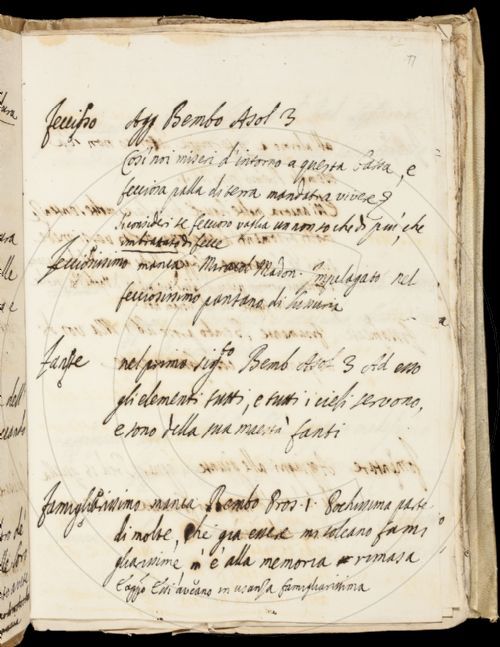 77
feccioso Agg Bembo Asol 3
Così noi miseri d'intorno a questa bassa, e
fecciosa palla di terra mandati a vivere
si consideri se feccioso vaglia un non so che di più, che
imbrattato di fecce
fecciosissimo manca Miracol Madon. Impelagato nel
fecciosissimo pantano di lussuria
fante nel primo sig.to Bemb Asol 3 Ad esso
gli elementi tutti, e tutti i cieli servono,
e sono della sua maestà fanti
famigliarissimo manca Bembo Pros. 1. Pochissima parte
di molte, che già essere mi soleano fami
gliarissime n'è alla memoria rimasa
in usanza famigliarissima